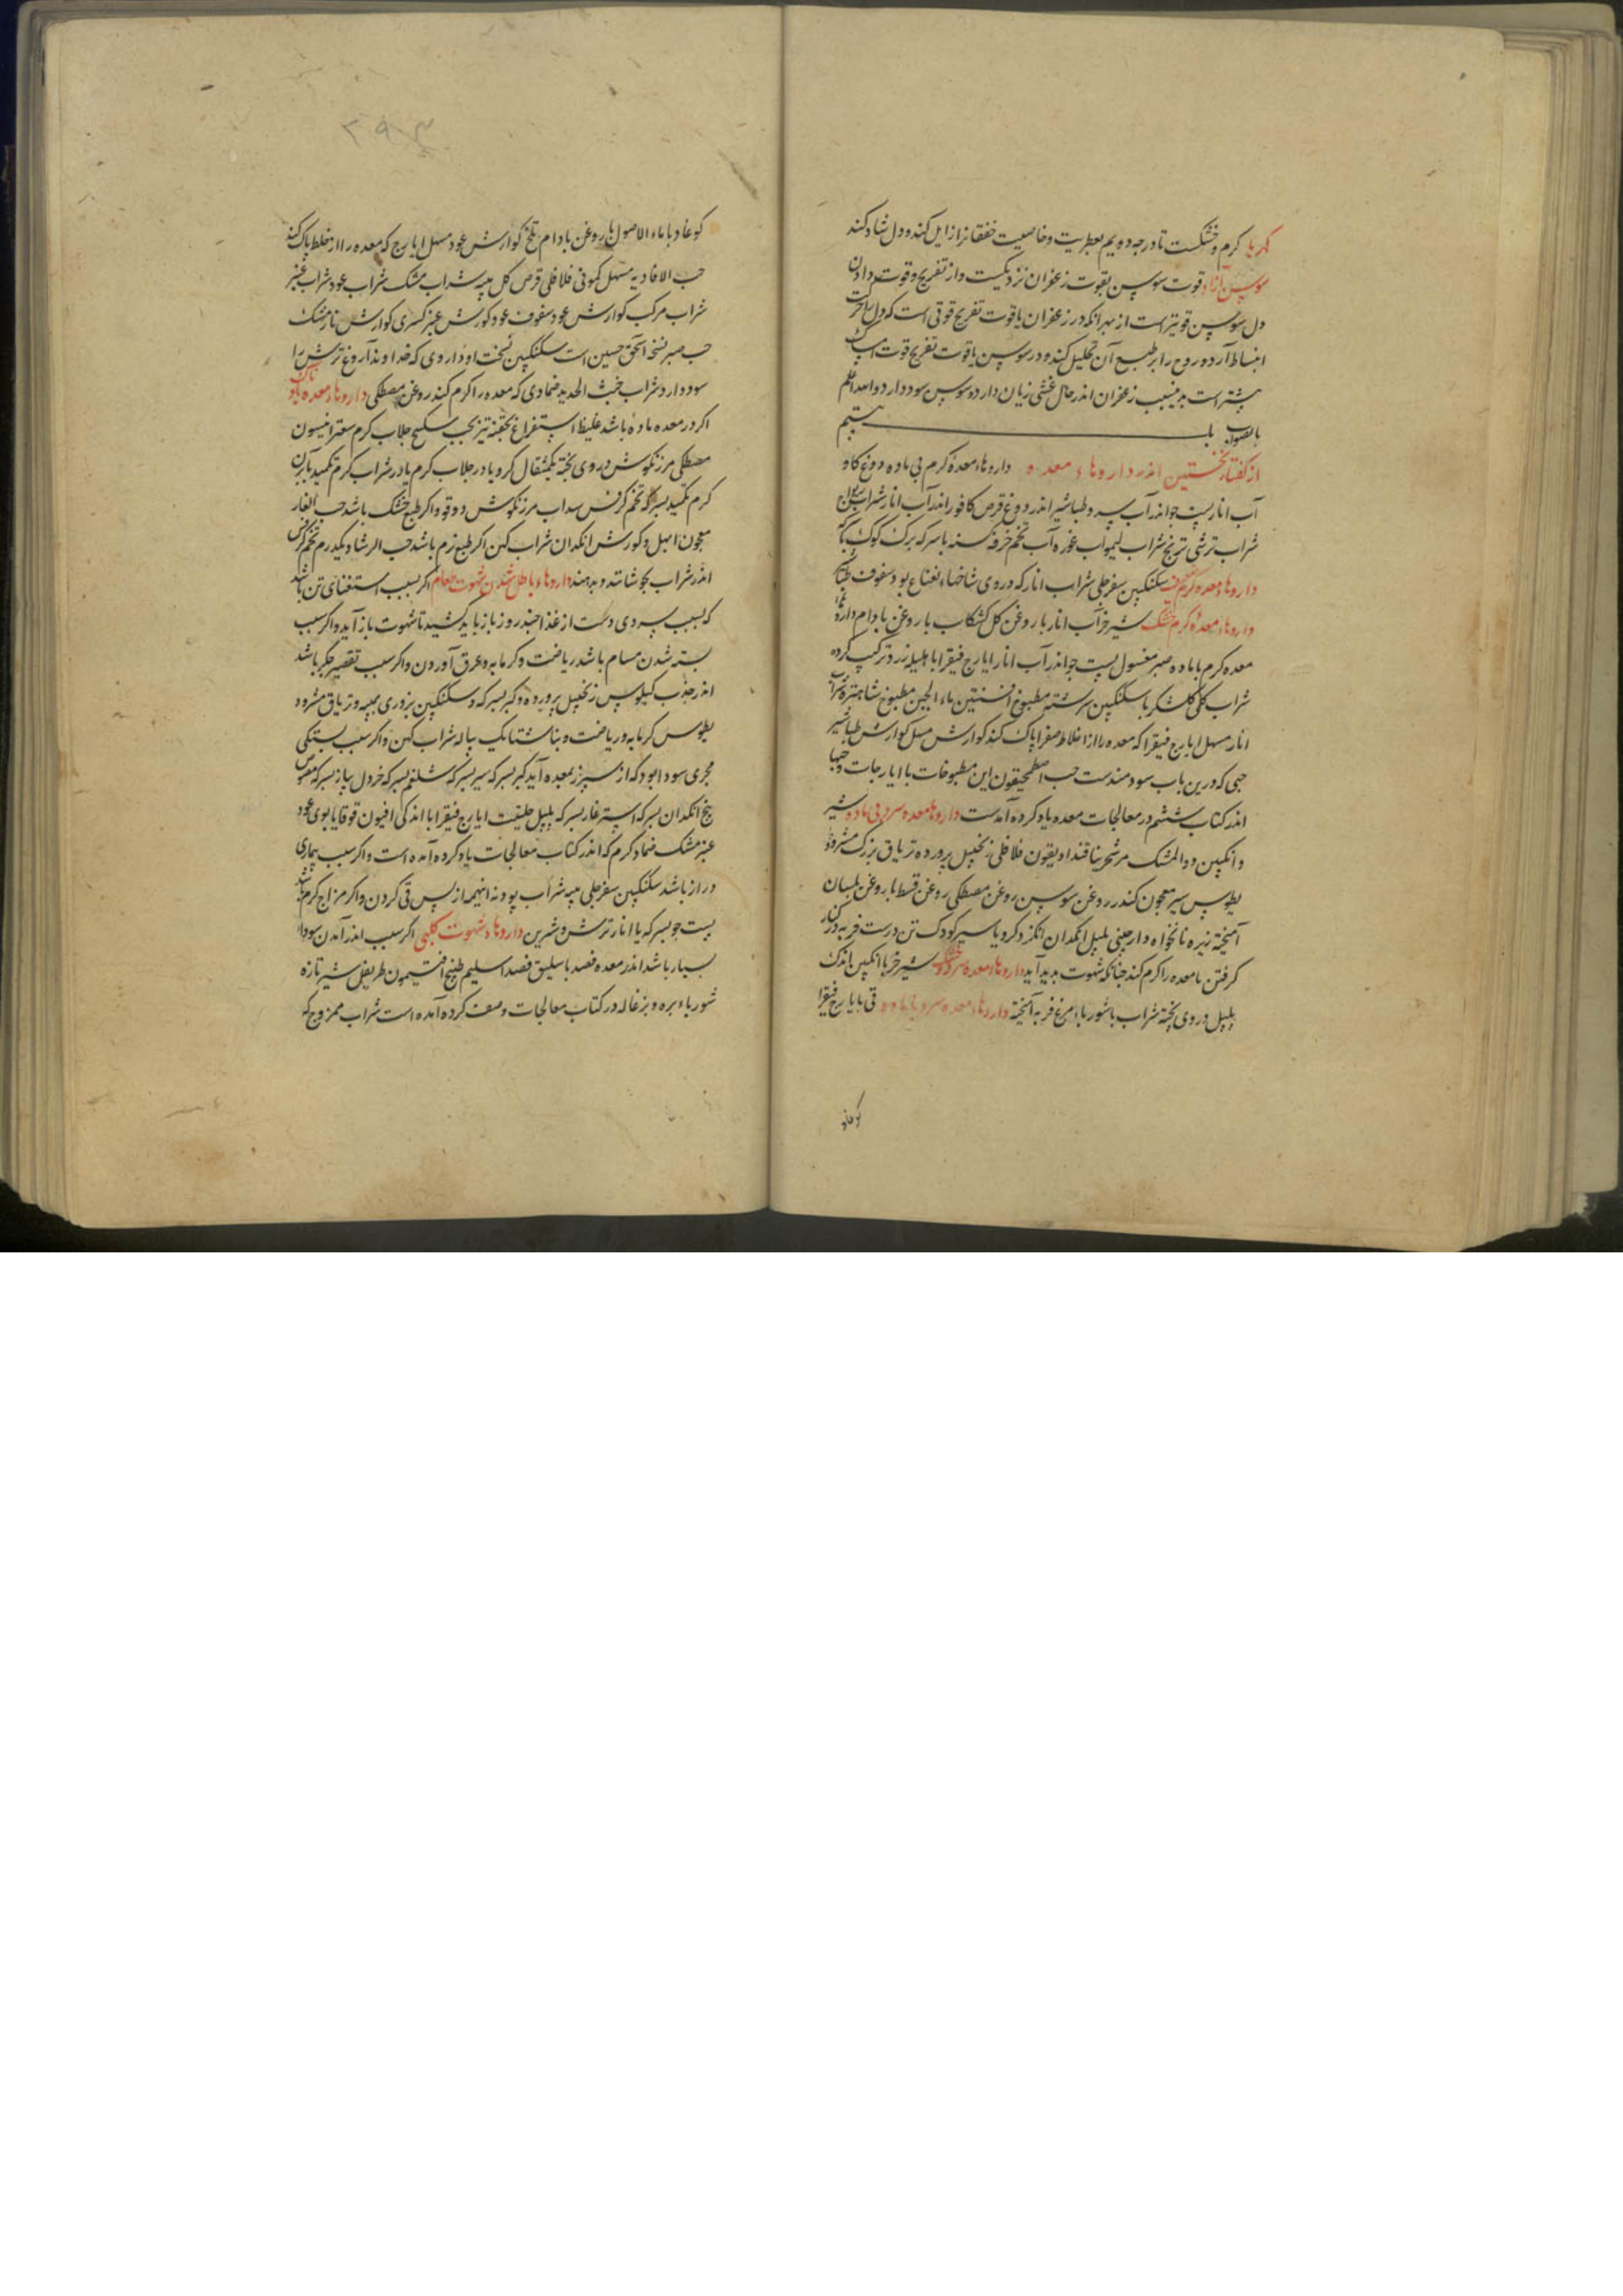 کهربا گرم و خشکست تا درجه دویم بعطریت و خاصیت خفقانرا زایل کند و دل شاد کند
سوسن آزاد قوت سوسن بقوت زعفران نزدیکست و از تفریح و قوت دادن
دل سوسن قویتر است از بهر آنکه در زعفران با قوت تفریح قوتی است که دل را
انبساط آرد و روح را بر طبع آن تحلیل کند و در سوسن با قوت تفریح قوت امساک
بیشتر است بدینسبب زعفران اندر حال غشی زیان دارد و سوسن سود دارد والله اعلم
بالصواب باب بیستم
از گفتار نخستین اندر داروهاء معده داروهاء معدهٔ گرم بی ماده دوغ کاو
آب انار پست جو اندر آب سرد طباشیر اندر دوغ قرص کافور اندر آب انار شراب
شراب ترشی ترنج شراب لیمو آب غوره آب تخم خرفه باسرکه برک کوک
داروهاء معده گرم سکنکبین سفرجلی شراب انار که در وی شاخهاء نعناع بود سفوف
داروهاء معدهٔ کرم خشک شیر خر آب انار با روغن کل کشکاب با روغن بادام
معده کرم با ماده صبر مغسول پست جو اندر آب انار ایارج فیقرا با هلیله زرد ترکیب کرده
شراب کل کلشکر با سکنکبین سرشته مطبوخ افسنتین ماء الجبن مطبوخ شاهتره شراب
انار مسهل ایارج فیقرا که معده را از اخلاط صفرا پاک کند کوارش مسهل کوارش طباشیر
حبی که درین باب سودمندست حب اصطمحیقون این مطبوخات با ایارجات و حبها
اندر کتاب ششم در معالجات معده یاد کرده آمدست داروهاء معده سرد بی ماده شیر
و انکبین دواالمشک فلافلی زنجبیل پرورده تریاق بزرک مثرود
یطوس سیر معجون کندر روغن سوسن روغن مصطکی روغن قسط با روغن بلسان
آمیخته زیره نانخواه دارچینی پلپل انکدان انکزد کرویا سیر کودک تن درست فربه در کنار
کرفتن تا معده را کرم کند چنانکه شهوت بدید آید داروهاء معده سرد خشک شیر خر با انکبین اندک
پلپل در وی پخته شراب با شورباء مرغ فربه آمیخته داروهاء معده سرد با ماده قی با ایارج فیقرا
کوغاذ
۲۹۳
کوغاذ با ماء الاصول با روغن بادام تلخ کوارش عود مسهل ایارج که معده را از خلط پاک کند
حب الافاویه مسهل کمونی فلافلی قرص کل میبه شراب مشک شراب عود شراب عنبر
شراب مرکب کوارش عود سفوف عود کورش عنبر کسری کوارش نارمشک
حب صبر نسخهٔ اسحق حسین است سکنکبین نسخت او داروی که خداوند آروغ ترش را
سود دارد شراب خبث الحدید ضمادی که معده را کرم کند روغن مصطکی داروهاء معده باد ناک
اکر در معده ماده باشد غلیظ استفراغ بحقنه تیز بحب سکبینج جلاب کرم سعتر انیسون
مصطکی مرزنکوش در وی پخته یکمثقال کرویا در جلاب کرم یا در شراب کرم تکمید بآب
کرم تکمید بسبوس تخم کرفس سداب مرزنکوش دوقو و اکر طبع خشک باشد حب الغار
معجون ابهل و کورش انکدان شراب کهن اکر طبع نرم باشد حب الرشاد یکدرم تخم کرفس
اندر شراب بجوشانند و بدهند داروهاء باطل شدن شهوت طعام اکر بسبب استغنای تن باشد
که بسبب سردی دست از غذا چند روز باز باید کشید تا شهوت باز آید و اکر بسبب
بسته شدن مسام باشد ریاضت و کرمابه و عرق آوردن و اکر بسبب تقصیر جکر باشد
اندر جذب کیلوس زنجبیل پرورده و کبر بسرکه و سکنکبین بزوری میبه و تریاق مثرود
یطوس کرمابه و ریاضت و بناشتا یک پیاله شراب کهن و اکر بسبب بستکی
مجری سودا بود که از سپرز بمعده آید کبر بسرکه سیر بسرکه شلغم بسرکه خردل پیاز بسرکه
بیخ انکدان بسرکه پلپل حلتیت ایارج فیقرا با اندکی افیون قوقایا بوی عود
عنبر مشک ضماد کرم که اندر کتاب معالجات یاد کرده آمده است و اکر بسبب بیماری
دراز باشد سکنکبین سفرجلی میبه شراب پودنه اینهمه از پس قی کردن و اکر مزاج کرم باشد
پست جو بسرکه یا انار ترش و شیرین داروهاء شهوت کلبی اکر بسبب اندر آمدن سودا
بسیار باشد اندر معده فصد باسلیق فصد اسلیم طبیخ افتیمون طریفل شیر تازه
شورباء بره و بزغاله در کتاب معالجات وصف کرده آمده است شراب ممزوج که